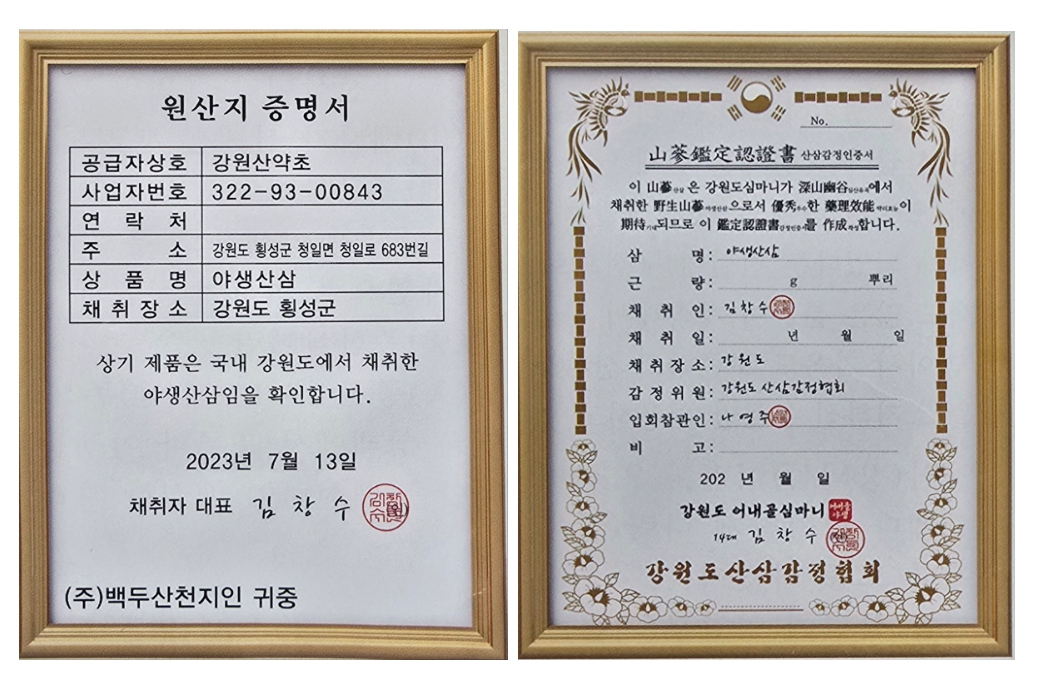 원산지 증명서
공급자상호 강원산약초
사업자번호 322-93-00843
연 락 처
주 소 강원도 횡성군 청일면 청일로 683번길
상 품 명 야생산삼
채 취 장 소 강원도 횡성군
상기 제품은 국내 강원도에서 채취한
야생산삼임을 확인합니다.
2023년 7월 13일
채취자 대표 김 창 수
(주)백두산천지인 귀중
No.
山蔘鑑定認證書 산삼감정인증서
이 山蔘산삼은 강원도심마니가 深山幽谷심산유곡에서
채취한 野生山蔘야생산삼으로서 優秀우수한 藥理效能약리효능이
期待기대되므로 이 鑑定認證書감정인증서를 作成작성합니다.
삼 명 : 야생산삼
근 량 : g 뿌리
채 취 인 : 김 창 수
채 취 일 : 년 월 일
채 취 장 소 : 강 원 도
감 정 위 원 : 강원도 산삼감정협회
입회참관인 : 나 영 주
비 고 :
202 년 월 일
강원도 어내골심마니
14대 김 창 수
강원도산삼감정협회